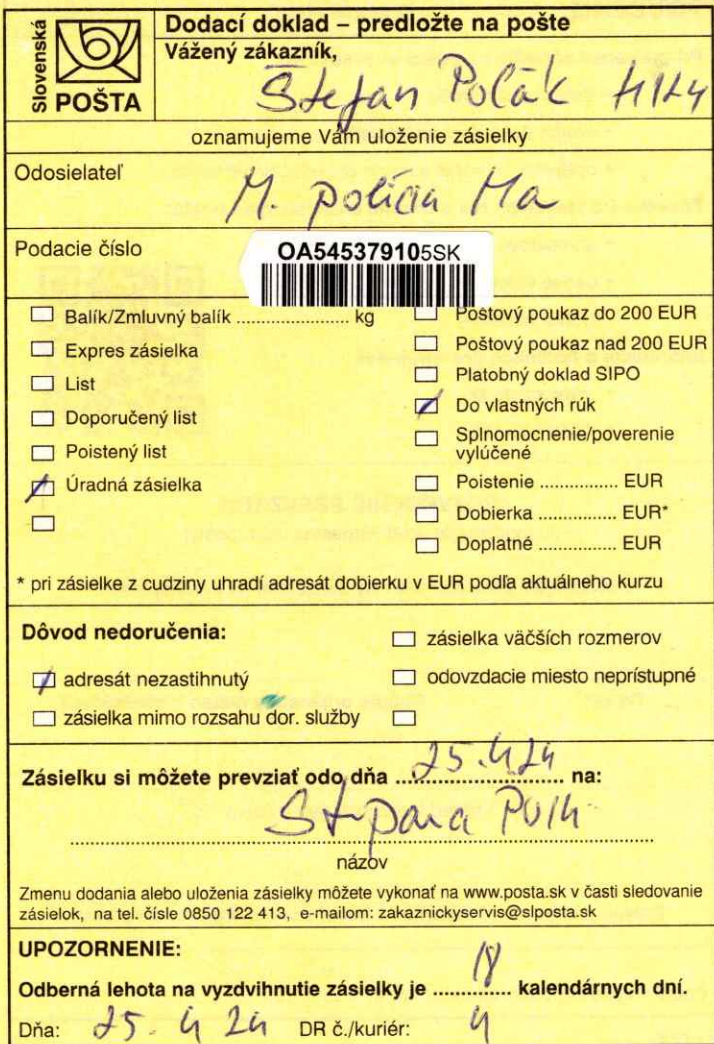 Slovenská
POŠTA
Dodací doklad – predložte na pošte
Vážený zákazník,
Štefan Polák
oznamujeme Vám uloženie zásielky
Odosielateľ
M. polícia Ma
Podacie číslo
OA545379105SK
Balík/Zmluvný balík .................... kg
Expres zásielka
List
Doporučený list
Poistený list
Úradná zásielka
Poštový poukaz do 200 EUR
Poštový poukaz nad 200 EUR
Platobný doklad SIPO
Do vlastných rúk
Splnomocnenie/poverenie
vylúčené
Poistenie .............. EUR
Dobierka .............. EUR*
Doplatné .............. EUR
* pri zásielke z cudziny uhradí adresát dobierku v EUR podľa aktuálneho kurzu
Dôvod nedoručenia:
zásielka väčších rozmerov
adresát nezastihnutý
odovzdacie miesto neprístupné
zásielka mimo rozsahu dor. služby
Zásielku si môžete prevziať odo dňa 25.4 24 na:
názov
Zmenu dodania alebo uloženia zásielky môžete vykonať na www.posta.sk v časti sledovanie
zásielok, na tel. čísle 0850 122 413, e-mailom: zakaznickyservis@slposta.sk
UPOZORNENIE:
Odberná lehota na vyzdvihnutie zásielky je 18 kalendárnych dní.
Dňa: 25. 4 24 DR č./kuriér: 4